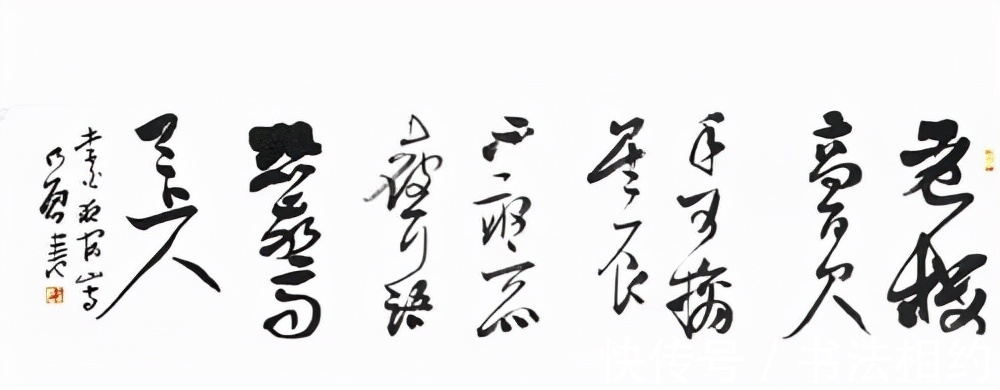 危楼
高百尺
手可摘
星辰
不敢高
聲語
恐驚
天上人
李白夜宿山寺
書
快传号 / 书法相约